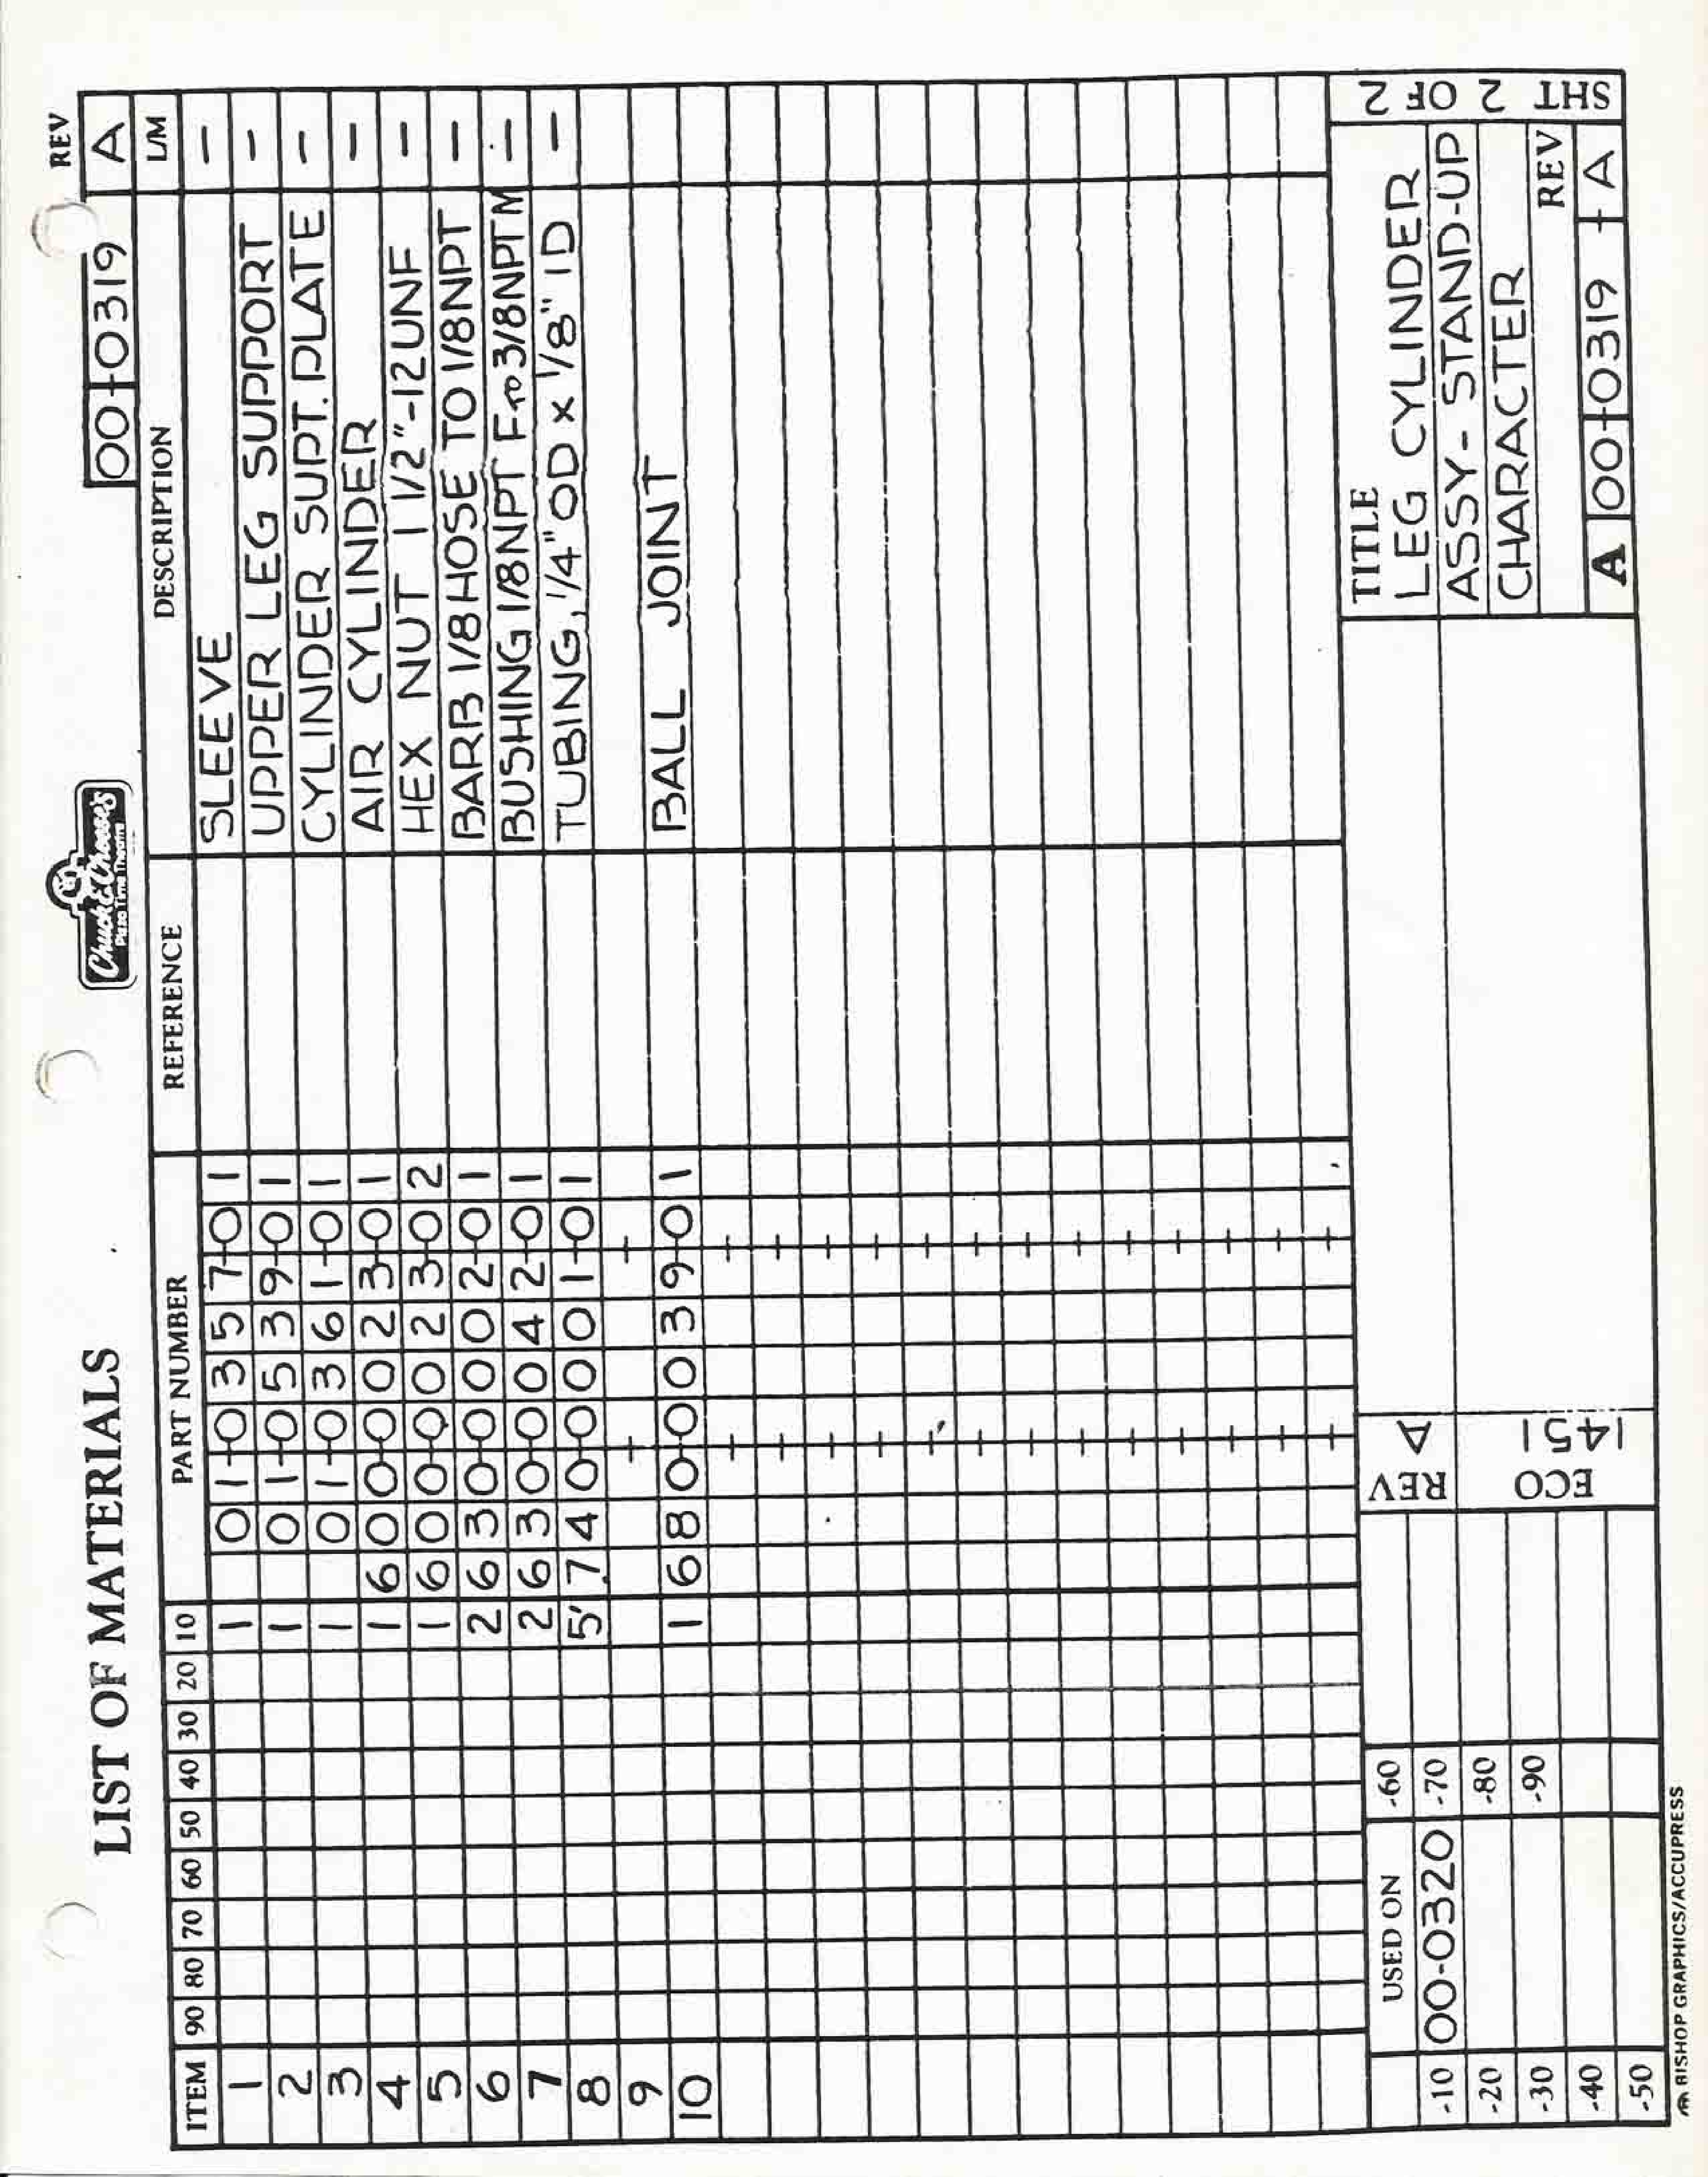 LIST OF MATERIALS
Chuck E. Cheese's
Pizza Time Theatre
REV
00-0319 A
ITEM 90 80 70 60 50 40 30 20 10 PART NUMBER REFERENCE DESCRIPTION L/M
1 1 01-0357-01 SLEEVE –
2 1 01-0539-01 UPPER LEG SUPPORT –
3 1 01-0361-01 CYLINDER SUPT. PLATE –
4 1 600-0023-01 AIR CYLINDER –
5 1 600-0023-02 HEX NUT 1 1/2"-12UNF –
6 2 630-0002-01 BARB 1/8 HOSE TO 1/8NPT –
7 2 630-0042-01 BUSHING 1/8NPT F TO 3/8NPTM –
8 5' 740-0001-01 TUBING, 1/4" OD x 1/8" ID –
9
10 1 680-0039-01 BALL JOINT
USED ON
-10 00-0320
-20
-30
-40
-50
-60
-70
-80
-90
REV A
ECO 1451
TITLE
LEG CYLINDER
ASSY- STAND-UP
CHARACTER
REV
A 00-0319 - A
SHT 2 OF 2
BISHOP GRAPHICS/ACCUPRESS